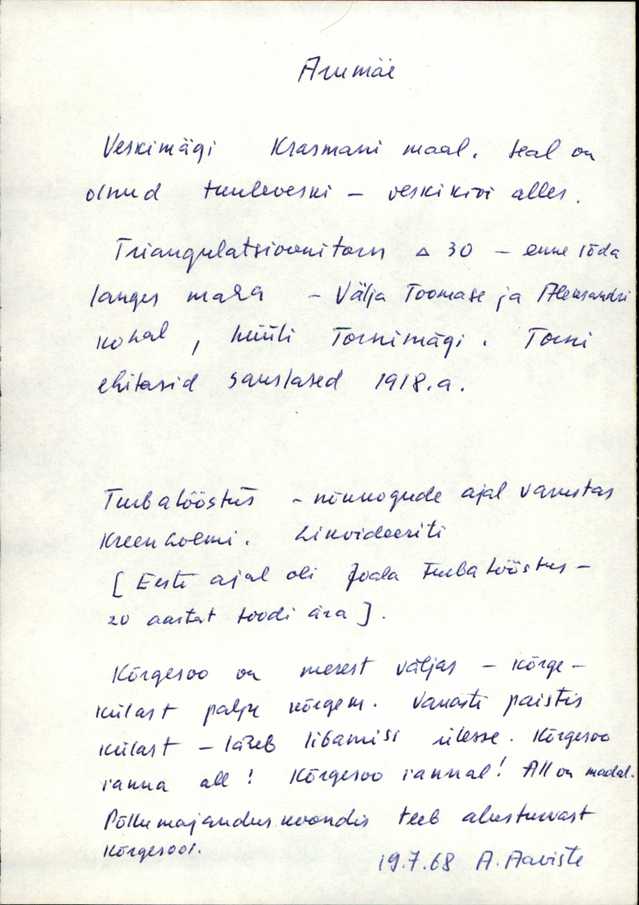 Arumäe
Veskimägi Krasmani maal. Seal on
olnud tuuleveski - veskikivi alles.
Triangulatsioonitorn △ 30 - enne sõda
langes maha - Välja Toomase ja Aleksandri
kohal, hüüti Tornimägi. Torni
ehitasid sakslased 1918.a.
Turbatööstus - nõukogude ajal varustas
Kreenholmi. Likvideeriti
[Eesti ajal oli Joala Turbatööstus -
20 aastat toodi ära].
Kõrgesoo on merest väljas - Kõrge-
külast palju kõrgem. Vanasti paistis
külast - läheb libamisi ülesse. Kõrgesoo
ranna all! Kõrgesoo rannal! All on madal.
Põllumajanduskoondis teeb alusturvast
Kõrgesool.
19.7.68 A. Aaviste